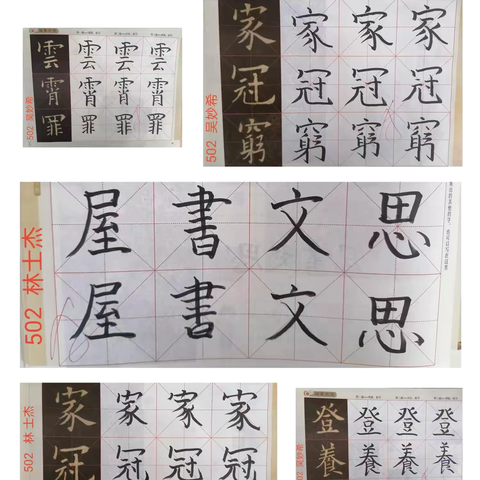 502 吴妙希
雲 雲 雲 雲
霄 霄 霄 霄
罪 罪 罪 罪
502 吴妙希
家 家 家 家
冠 冠 冠 冠
窮 窮 窮 窮
502 林士杰
屋 書 文 思
屋 書 文 思
502 林士杰
家 家 家 家
冠 冠 冠 冠
502 吴妙希
登 登 登 登
養 養 養 養